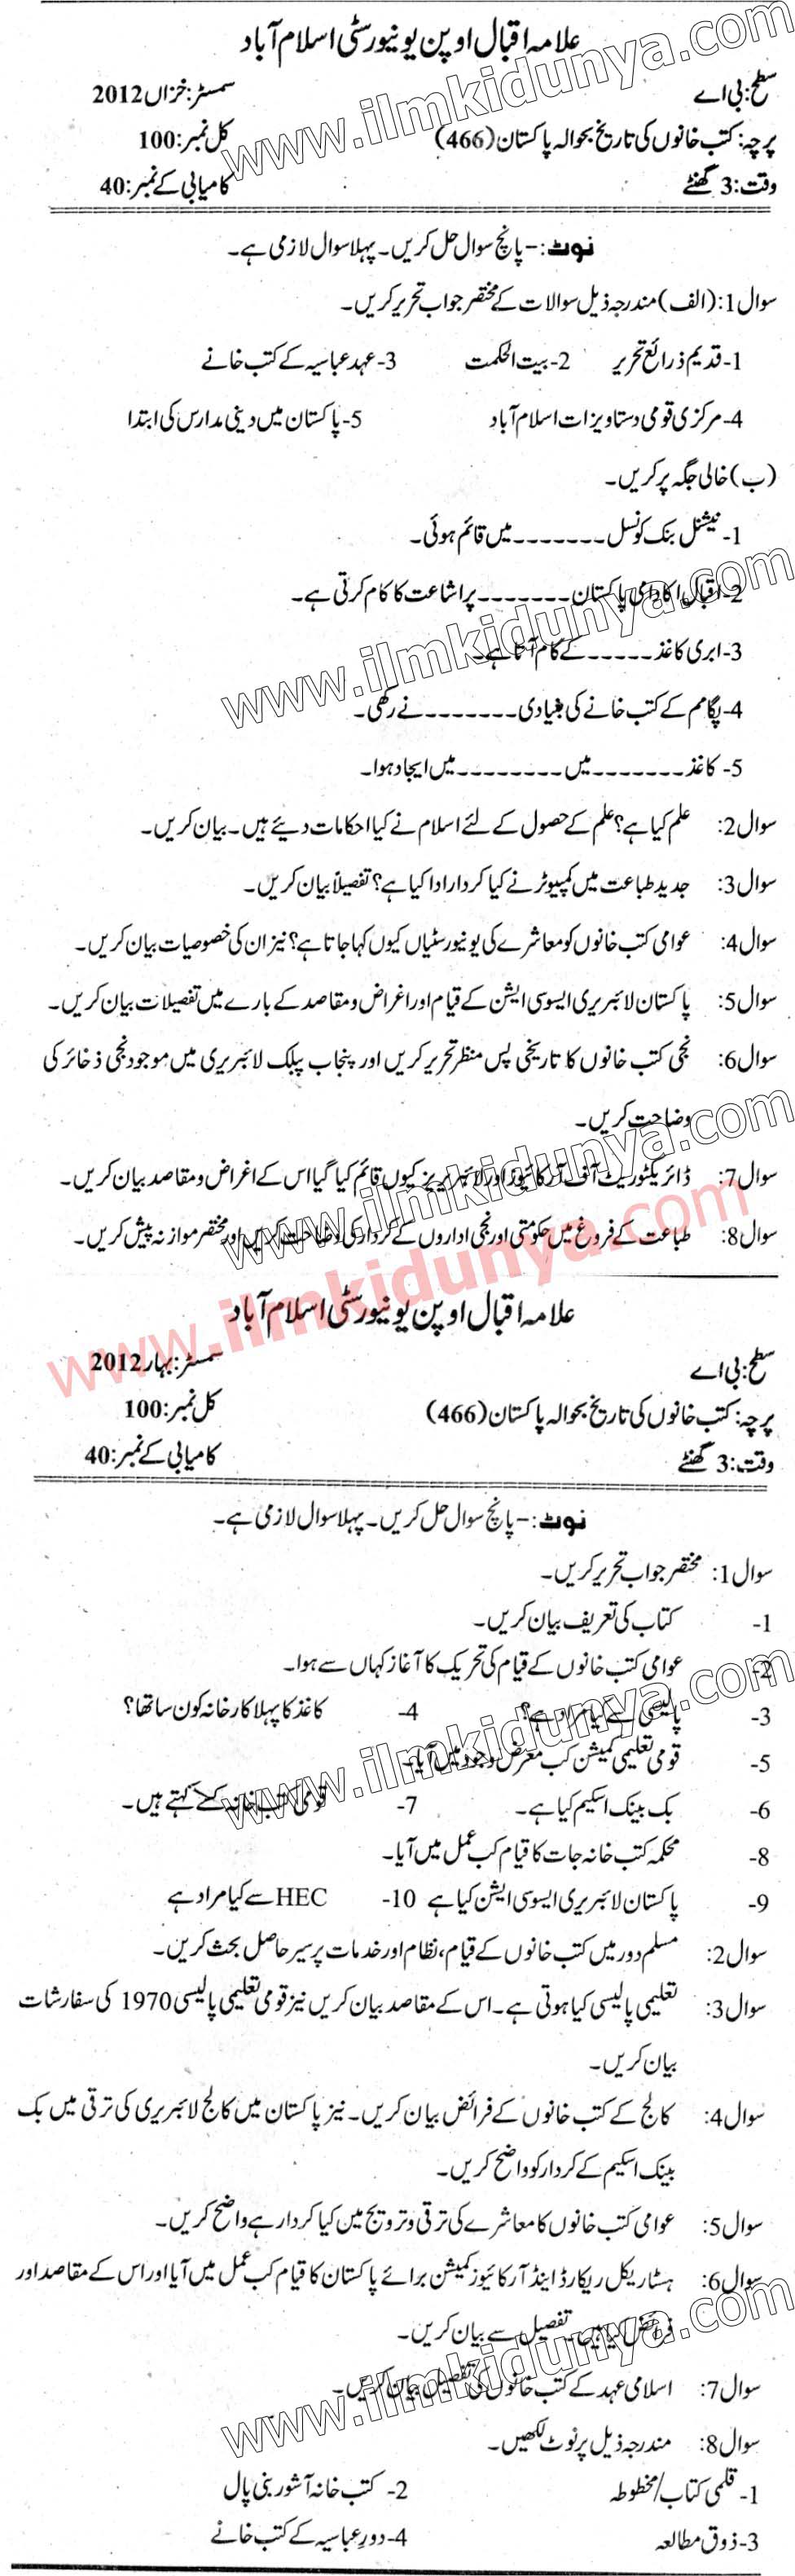 علامہ اقبال اوپن یونیورسٹی اسلام آباد
سطح: بی اے
سمسٹر: خزاں 2012
پرچہ: کتب خانوں کی تاریخ بحوالہ پاکستان (466)
کل نمبر: 100
وقت: 3 گھنٹے
کامیابی کے نمبر: 40
www.ilmkidunya.com
نوٹ: - پانچ سوال حل کریں۔ پہلا سوال لازمی ہے۔
سوال 1: (الف) مندرجہ ذیل سوالات کے مختصر جواب تحریر کریں۔
1- قدیم ذرائع تحریر 2- بیت الحکمت 3- عہد عباسیہ کے کتب خانے
4- مرکزی قومی دستاویزات اسلام آباد 5- پاکستان میں دینی مدارس کی ابتدا
(ب) خالی جگہ پر کریں۔
1- نیشنل بنک کونسل ------- میں قائم ہوئی۔
2- اقبال اکادامی پاکستان ------- پر اشاعت کا کام کرتی ہے۔
3- ابری کاغذ ----- کے کام آتا ہے۔
www.ilmkidunya.com
4- پگامم کے کتب خانے کی بنیادی ------- نے رکھی۔
5- کاغذ ------- میں -------- میں ایجاد ہوا۔
سوال 2: علم کیا ہے؟ علم کے حصول کے لئے اسلام نے کیا احکامات دیئے ہیں۔ بیان کریں۔
سوال 3: جدید طباعت میں کمپیوٹر نے کیا کردار ادا کیا ہے؟ تفصیلاً بیان کریں۔
سوال 4: عوامی کتب خانوں کو معاشرے کی یونیورسٹیاں کیوں کہا جاتا ہے؟ نیز ان کی خصوصیات بیان کریں۔
سوال 5: پاکستان لائبریری ایسوسی ایشن کے قیام اور اغراض و مقاصد کے بارے میں تفصیلات بیان کریں۔
سوال 6: نجی کتب خانوں کا تاریخی پس منظر تحریر کریں اور پنجاب پبلک لائبریری میں موجود نجی ذخائر کی
وضاحت کریں۔
www.ilmkidunya.com
سوال 7: ڈائریکٹوریٹ آف آرکائیوز اور لائبریریز کیوں قائم کیا گیا اس کے اغراض و مقاصد بیان کریں۔
سوال 8: طباعت کے فروغ میں حکومتی اور نجی اداروں کے کردار کی وضاحت کریں اور مختصر موازنہ پیش کریں۔
www.ilmkidunya.com
علامہ اقبال اوپن یونیورسٹی اسلام آباد
سطح: بی اے
سمسٹر: بہار 2012
پرچہ: کتب خانوں کی تاریخ بحوالہ پاکستان (466)
کل نمبر: 100
وقت: 3 گھنٹے
کامیابی کے نمبر: 40
نوٹ: - پانچ سوال حل کریں۔ پہلا سوال لازمی ہے۔
سوال 1: مختصر جواب تحریر کریں۔
1- کتاب کی تعریف بیان کریں۔
2- عوامی کتب خانوں کے قیام کی تحریک کا آغاز کہاں سے ہوا۔
3- پالیسی سے کیا مراد ہے؟ 4- کاغذ کا پہلا کارخانہ کون سا تھا؟
www.ilmkidunya.com
5- قومی تعلیمی کمیشن کب معرض وجود میں آیا۔
6- بک بینک اسکیم کیا ہے۔ 7- قومی کتب خانہ کسے کہتے ہیں۔
8- محکمہ کتب خانہ جات کا قیام کب عمل میں آیا۔
9- پاکستان لائبریری ایسوسی ایشن کیا ہے 10- HEC سے کیا مراد ہے
سوال 2: مسلم دور میں کتب خانوں کے قیام، نظام اور خدمات پر سیر حاصل بحث کریں۔
سوال 3: تعلیمی پالیسی کیا ہوتی ہے۔ اس کے مقاصد بیان کریں نیز قومی تعلیمی پالیسی 1970 کی سفارشات
بیان کریں۔
سوال 4: کالج کے کتب خانوں کے فرائض بیان کریں۔ نیز پاکستان میں کالج لائبریری کی ترقی میں بک
بینک اسکیم کے کردار کو واضح کریں۔
سوال 5: عوامی کتب خانوں کا معاشرے کی ترقی و ترویج مین کیا کردار ہے واضح کریں۔
سوال 6: ہسٹاریکل ریکارڈ اینڈ آرکائیوز کمیشن برائے پاکستان کا قیام کب عمل میں آیا اور اس کے مقاصد اور
فرائض کیا ہیں۔ تفصیل سے بیان کریں۔
www.ilmkidunya.com
سوال 7: اسلامی عہد کے کتب خانوں کی تفصیل بیان کریں۔
سوال 8: مندرجہ ذیل پر نوٹ لکھیں۔
1- قلمی کتاب / مخطوطہ 2- کتب خانہ آشور بنی پال
3- ذوق مطالعہ 4- دور عباسیہ کے کتب خانے